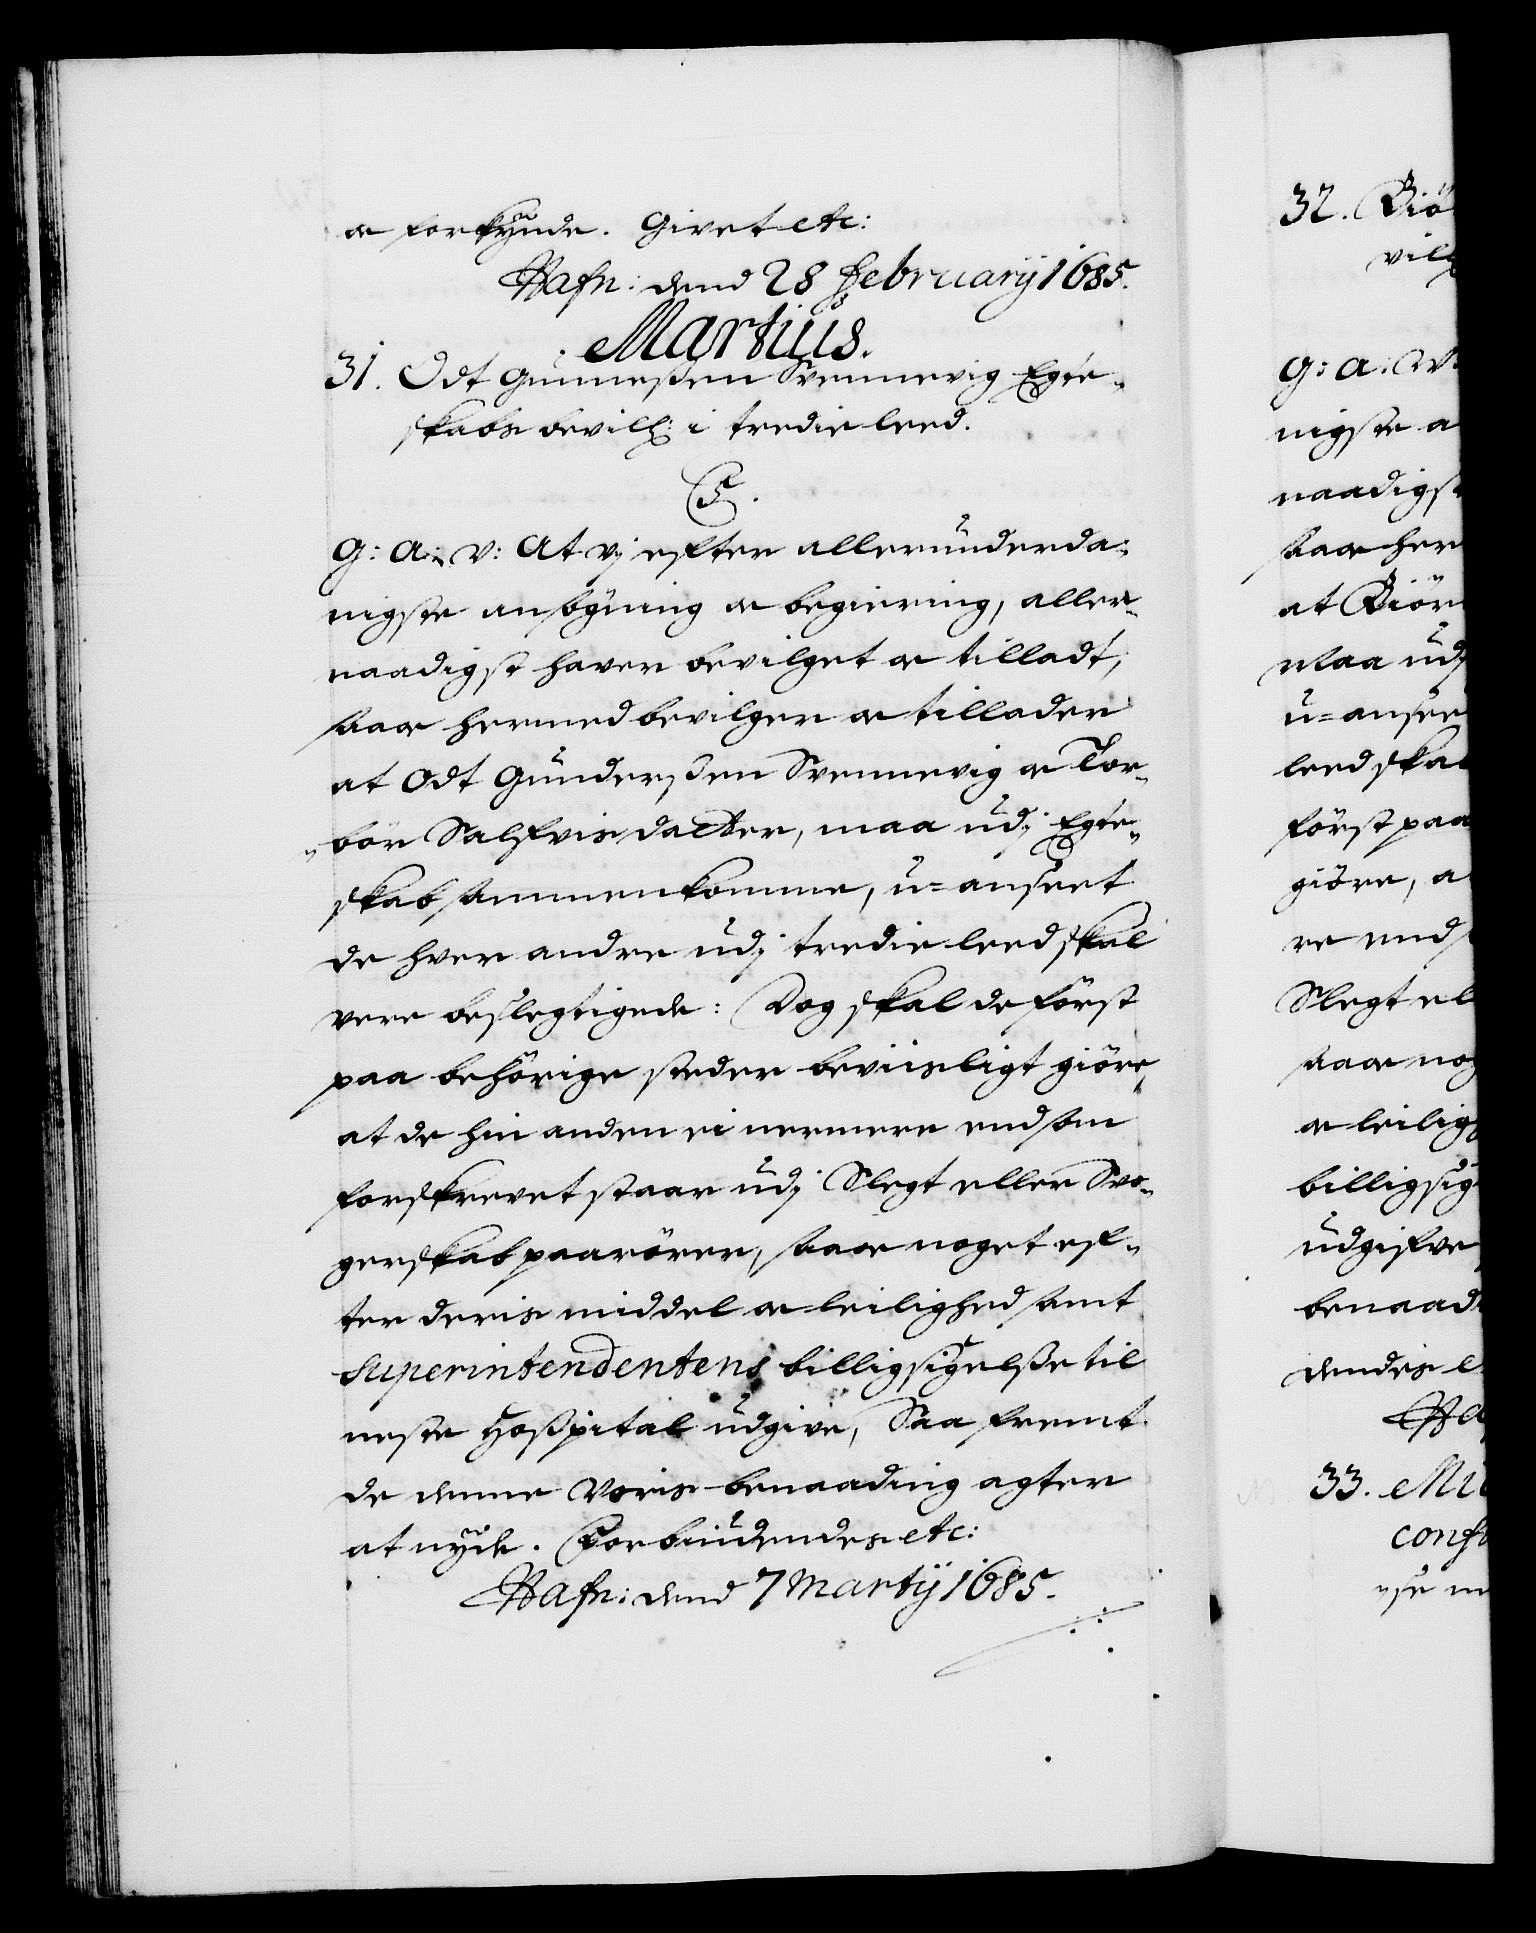 oc forkynde. Givet etc:
Hafn: dend 28 February 1685.
Martius.
31. Odt Gunnersen Svennevig Egte¬
skabs bevill: i tredie leed.
C5.
G: A: V: At vj efter allerunderda¬
nigste ansøgning oc begiering, aller¬
naadigst haver bevilget oc tilladt,
saa oc hermed bevilger oc tillader
at Odt Gunderssen Svennevig oc Tor¬
bør Salfvisdatter, maa udj Egte¬
skab sammenkomme, u=anseet
de hver andre udj tredie leed skal
vere beslegtigede: Dog skal de først
paa behørige steder beviisligt giøre,
at de hin anden ei nermere end som
forskrevet staar udj Slegt eller Svo¬
gerskab paarører, saa oc noget ef¬
ter deris middel oc leilighed samt
Superintendentens billigsigelsse til
neste Hospital udgive, Saafremt
de denne Voris benaading agter
at nyde. Forbiudendes etc:
Hafn: dend 7 Marty 1685.
32. Biö
vil
G: A: V:
nigste a
naadigst
saa oc her
at Biör
maa udj
u=ansee
leed skal
først paa
giöre, a
re end s
Slegt el
saa oc nog
oc leilig
billigsig
udgifve
benaad
dendis e
Ha
33. Mi
conf
se m